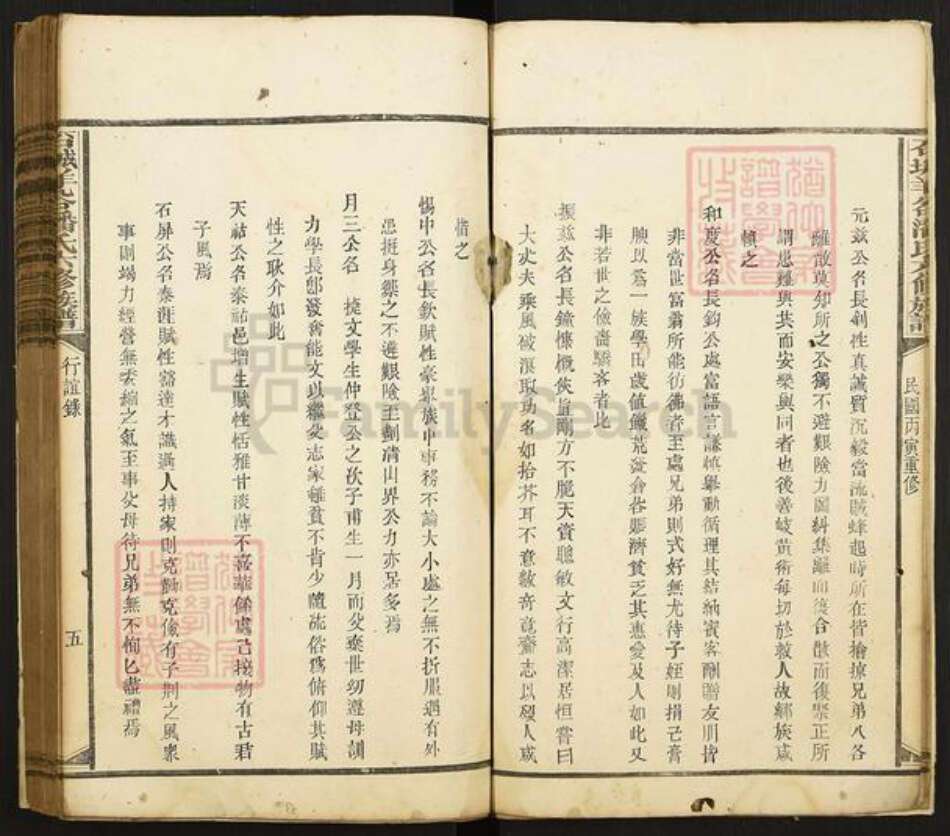 民國丙寅重修
元茲公名長剑性真誠質沉毅當流賊蜂起時所在皆搶掠兄弟八各
離散莫知所之公獨不避艱險力圖糾集離而復合散而復聚正所
謂患難與共而安樂與同者也後善岐黃術每切於救人故鄉族咸
慎之
和度公名長鈞公處富語言謙慎舉動循理其結納賓客酬贈友朋皆
非當世富翁所能彷彿者至處兄弟則式好無尤待子姪則捐己膏
腴以為一族學田歲值饑荒發倉各賑濟貧乏其惠愛及人如此又
非若世之儉嗇驕客者比
振茲公名長鐘慷慨俠旨剛方不脆天資聰敏文行高潔居恒嘗曰
大丈夫乘風破浪取功名如拾芥耳不意數奇竟齎志以歿人咸
惜之
惕中公名長欽賦性豪嶽族中事務不論大小處之無不折服遇有外
患挺身禦之不避艱險至劃清山界公力亦居多焉
月三公名 捷文學生仲登公之次子甫生一月而父棄世幼遵母訓
力學長卽發奮能文以繼父志家雖貧不肯少隨流俗為俯仰其賦
性之耿介如此
天祜公名泰祜邑增生賦性恬雅甘淡薄不喜華餙處己接物有古君
子風焉
石屏公名泰涯賦性豁達才識過人持家則克勤克儉有子荆之風衆
事則竭力經營無委縮之氣至事父母待兄弟無不恂匕盡禮焉
石城羊角潘氏六修族譜
行誼錄
五
FamilySearch